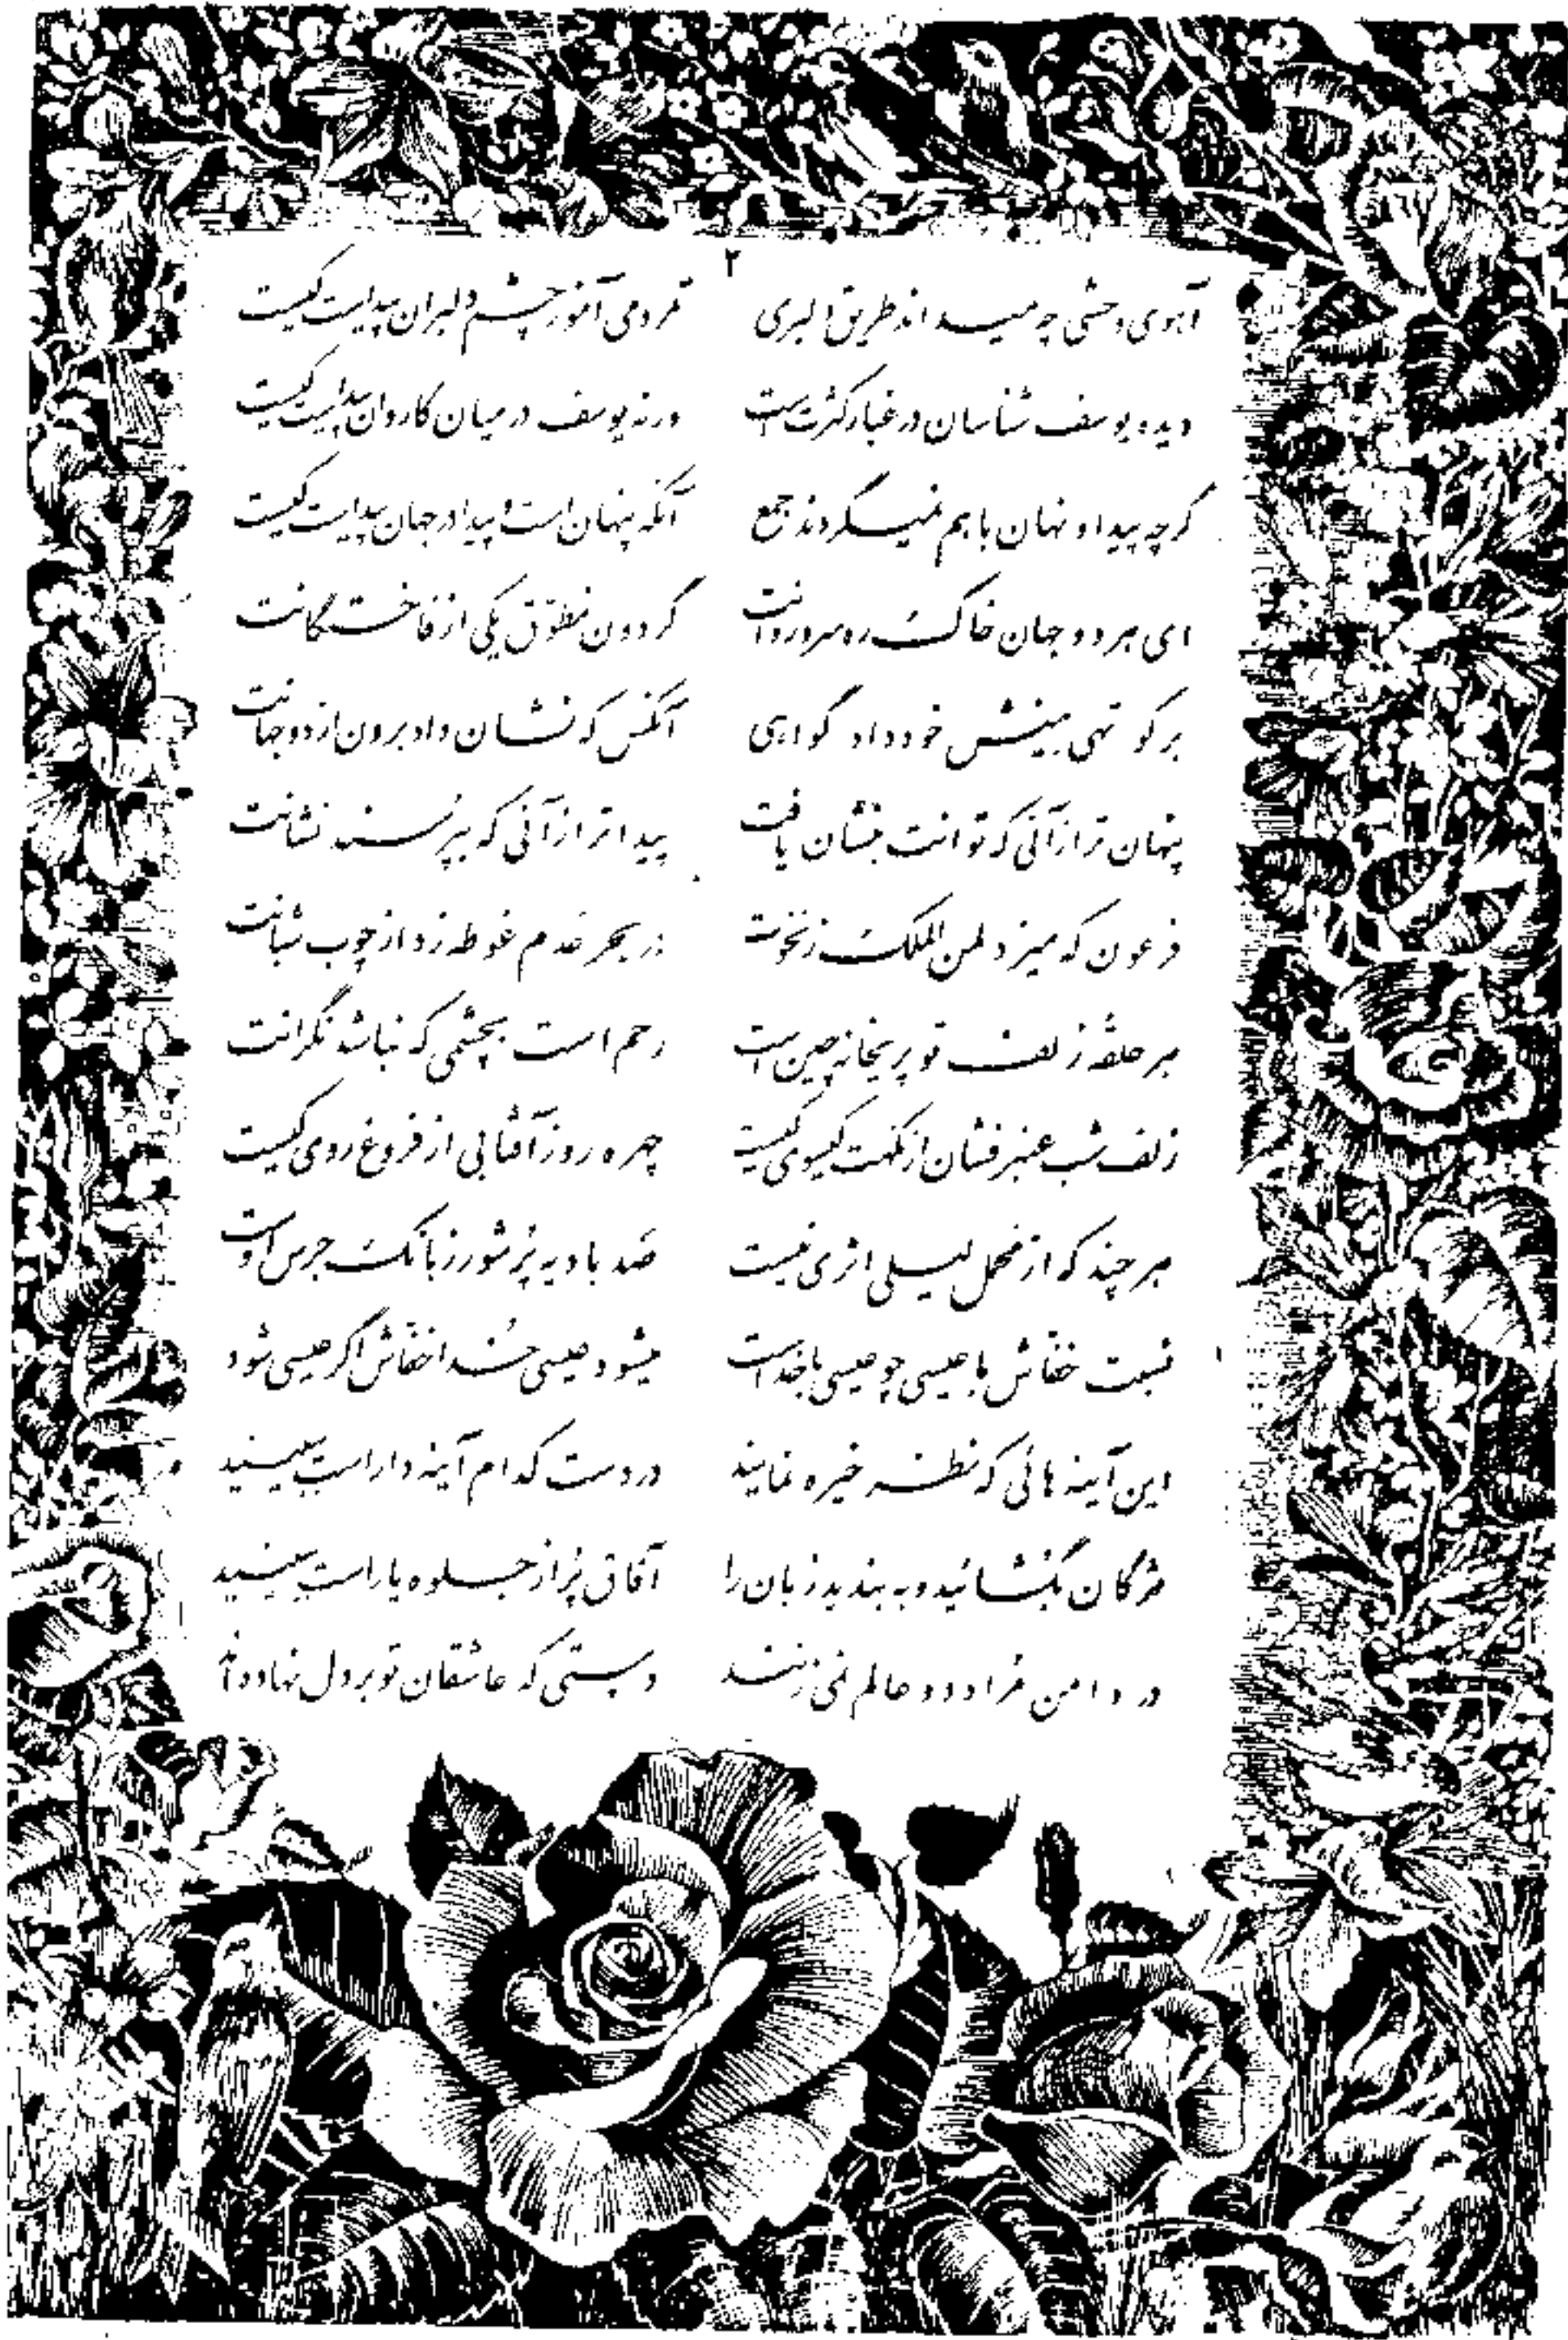 ۲
آهوی وحشی چه میداند طریق دلبری مردمی آموز چشم دلبران پیداست کیست
دیده یوسف شناسان در غبار کثرت است ورنه یوسف در میان کاروان پیداست کیست
گرچه پیدا و نهان باهم نمیگردند جمع آنکه پنهان است و پیدا در جهان پیداست کیست
ای هر دو جهان خاک ره سرو روانت گردون مطوق یکی از فاختگانت
بر کو تهی بینش خود داد گواهی آنکس که نشان داد برون از دو جهانت
پنهان تر از آنی که توانت بنشان یافت پیداتر از آنی که بپرسند نشانت
فرعون که میزد لمن الملک ز نخوت در بحر عدم غوطه زد از چوب شبانت
هر حلقه زلف تو پریخانه چین است رحم است بچشمی که نباشد نگرانت
زلف شب عنبرفشان از نکهت گیسوی کیست چهره روز آفتابی از فروغ روی کیست
هر چند که از محمل لیلی اثری نیست صد بادیه پرشور ز بانگ جرس اوست
نسبت خفاش با عیسی چو عیسی با خداست میشود عیسی خدا خفاش اگر عیسی شود
این آینه هائی که نظر خیره نمایند در دست کدام آینه دار است ببینید
مژگان بگشائید و به بندید زبان را آفاق پر از جلوه یار است ببینید
در دامن مراد دو عالم نمی زنند دستی که عاشقان تو بر دل نهاده‌اند